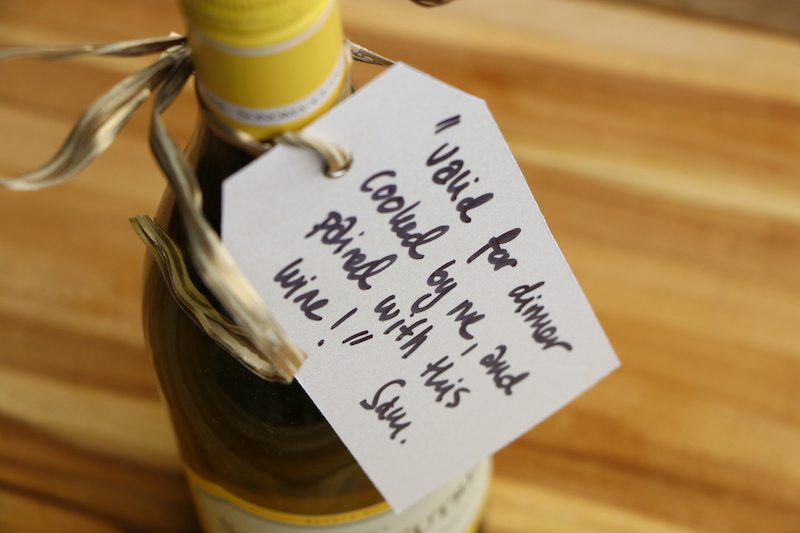 "valid for dinner
cooked by me, and
paired with this
wine!"
Sam.